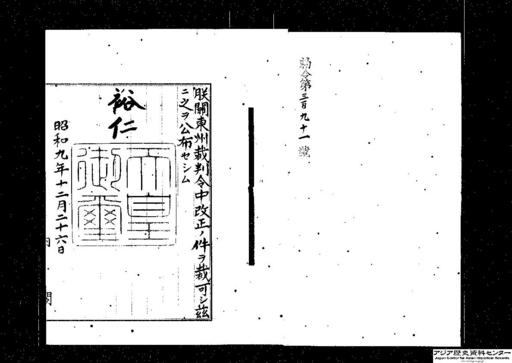 勅令第三百九十一號
朕關東州裁判令中改正ノ件ヲ裁可シ茲
ニ之ヲ公布セシム
裕仁
天皇
御璽
昭和九年十二月二十六日
内閣
アジア歴史資料センター
Japan Center for Asian Historical Records